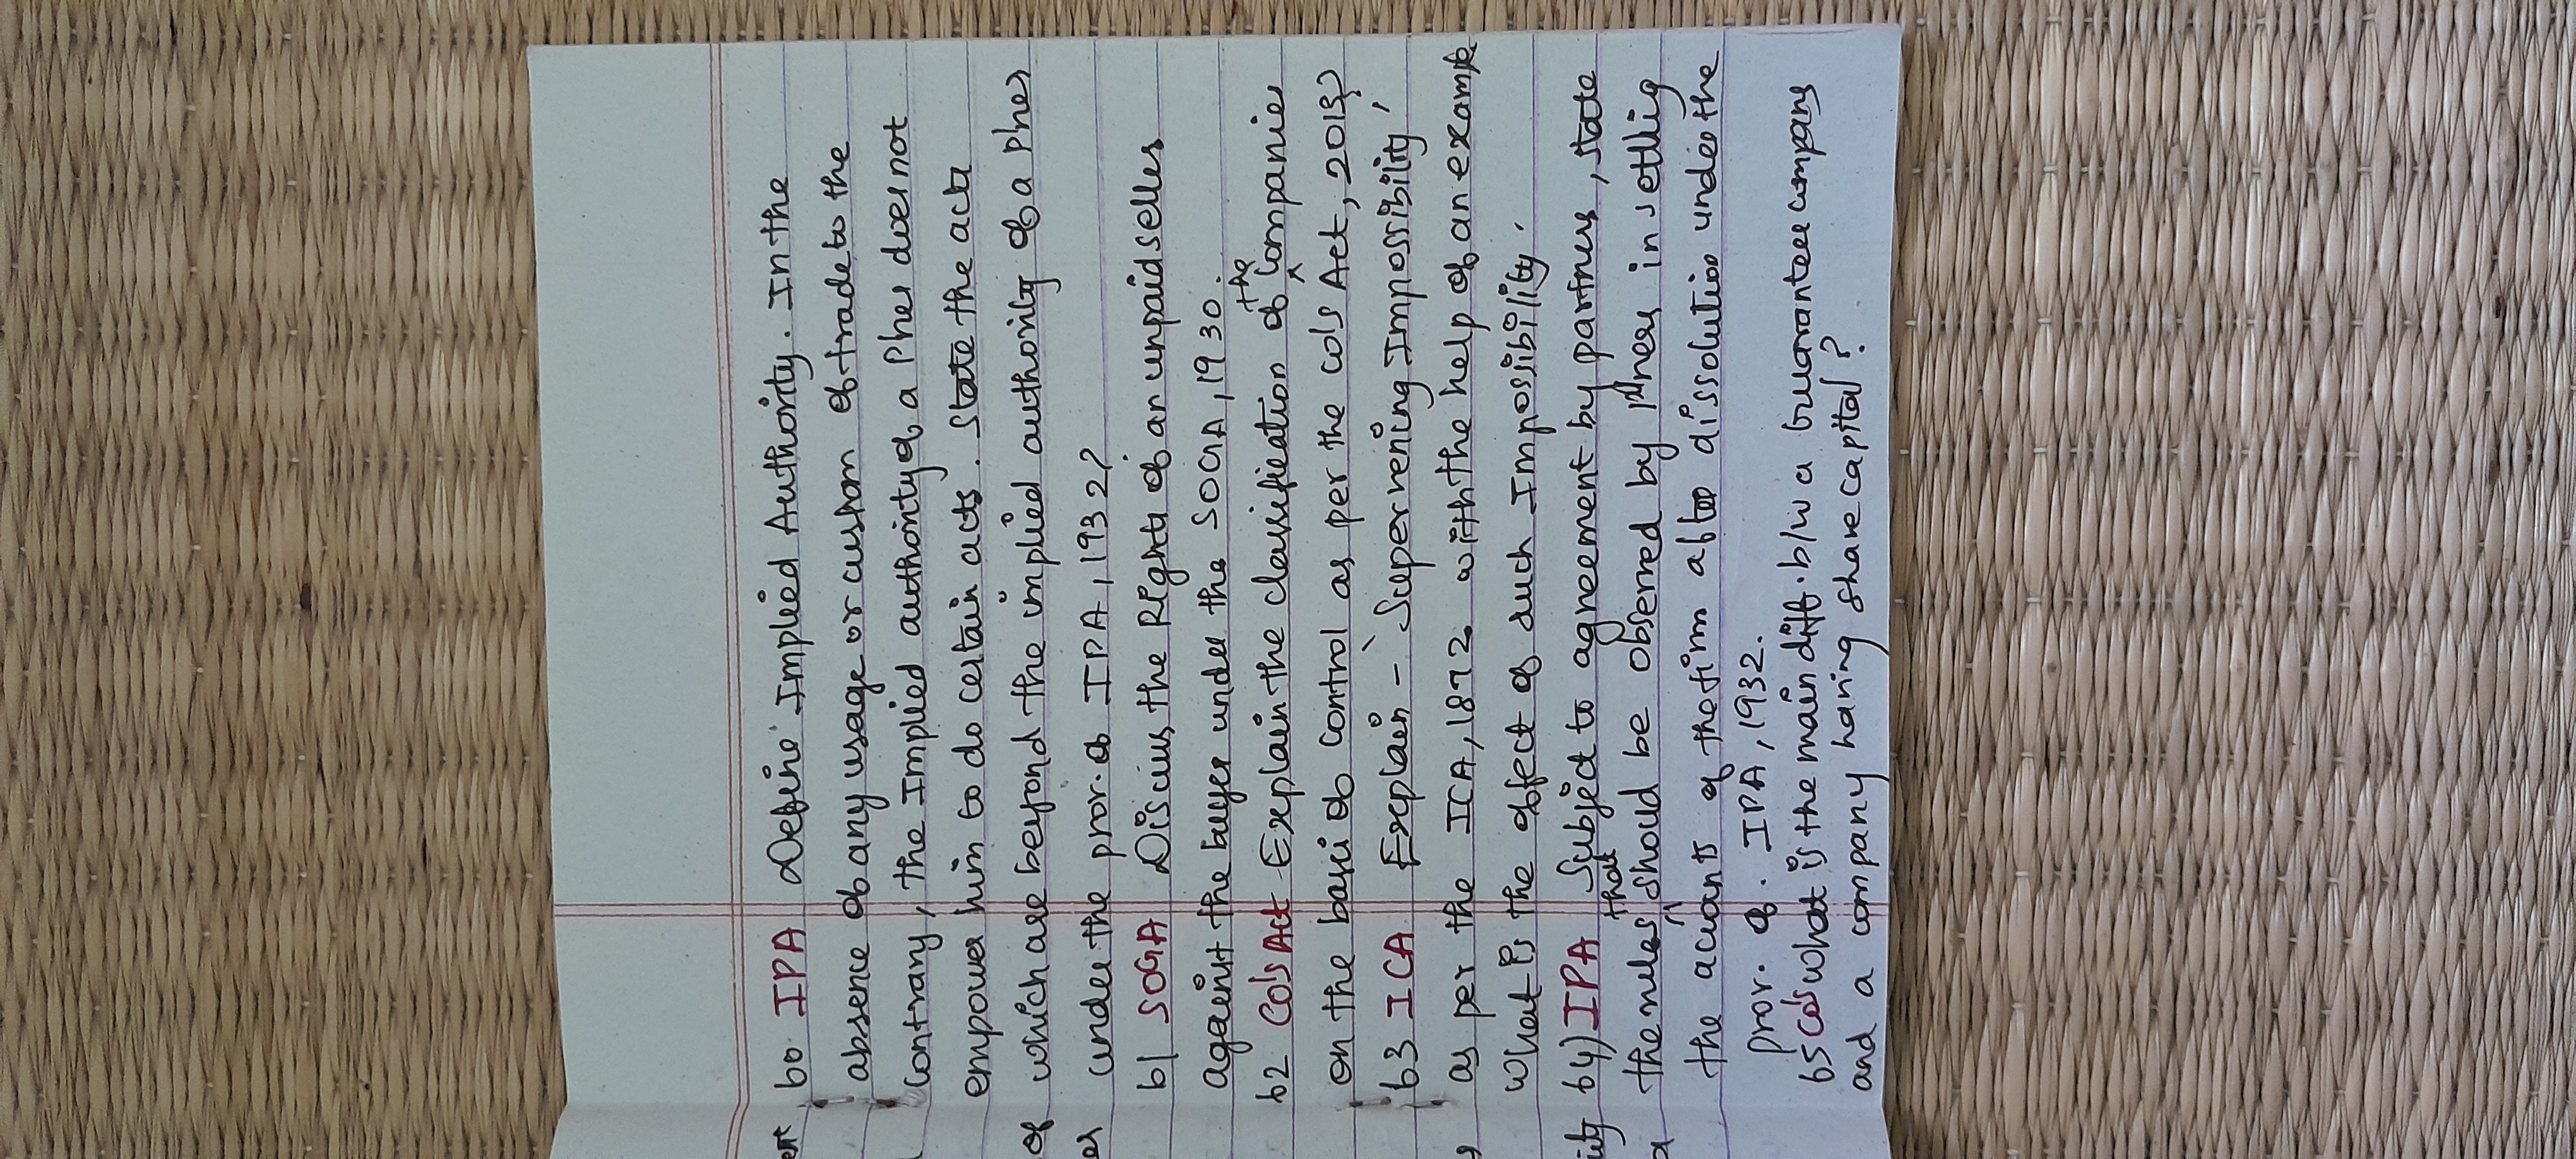 60. IPA Define Implied Authority. In the
absence of any usage or custom of trade to the
contrary, the Implied authority of a Pner does not
empower him to do certain acts. State the acts
of which are beyond the implied authority of a Pner
under the prov. of IPA, 1932?
61 SOGA Discuss the Rights of an unpaid seller
against the buyer under the SOGA, 1930.
62 Co's Act Explain the classification of the companies
on the basis of control as per the co's Act, 2013?
63 ICA Explain - 'Supervening Impossibility'
as per the ICA, 1872 with the help of an example
what is the effect of such Impossibility.
64) IPA Subject to agreement by partners, state
the rules that should be observed by pners in settling
the accounts of the firm after dissolution under the
prov. of. IPA, 1932.
65 Co's what is the main diff. b/w a Guarantee company
and a company having share capital?